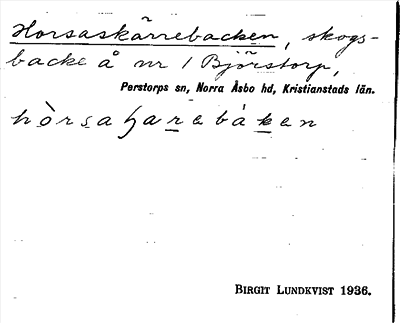 Horsaskärrebacken, skogs-
backe å nr 1 Björstorp,
Perstorps sn, Norra Åsbo hd, Kristianstads län.
hòrsaʃarebáken
BIRGIT LUNDKVIST 1936.